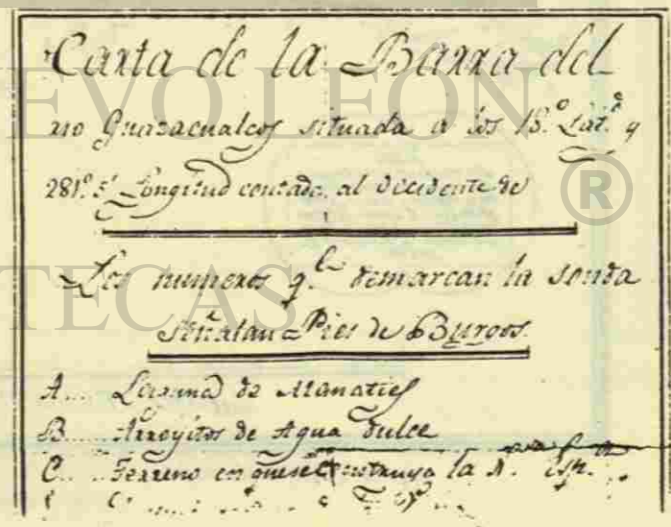 Carta de la Barra del
rio Guasacualcos situada a los 18.° Lat.d y
281.° 5' Longitud contada al Occidente de
Los numeros q.e demarcan la sonda
señalan Pies de Burgos.
A.... Laguna de Manaties
B..... Arroyitos de Agua dulce
C... Terreno en que se construya la
EVO LEON
®
TECAS